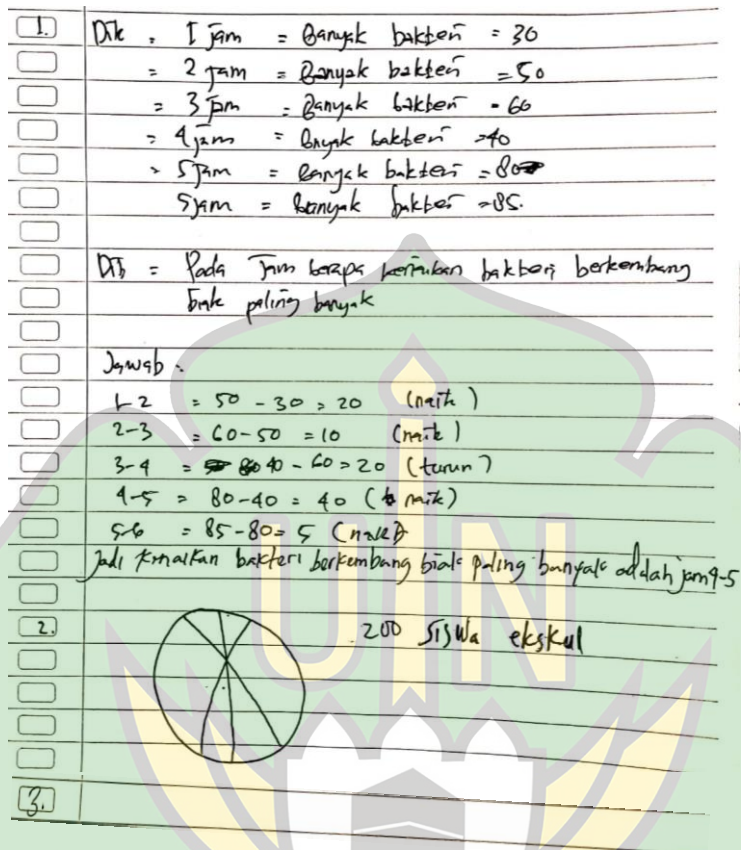 1. Dik = 1 jam = Banyak bakteri = 30
= 2 jam = Banyak bakteri = 50
= 3 jam = Banyak bakteri = 60
= 4 jam = Bnyak bakteri = 40
= 5 jam = Banyak bakteri = 80
5 jam = Banyak bakteri = 85.
Dit = Pada Jam berapa kenaikan bakteri berkembang
biak paling banyak
Jawab :
1-2 = 50 - 30 = 20 (naik)
2-3 = 60 - 50 = 10 (naik)
3-4 = 40 - 60 = 20 (turun)
4-5 = 80 - 40 = 40 (naik)
5-6 = 85 - 80 = 5 (naik)
Jadi kenaikan bakteri berkembang biak paling banyak adalah jam 4-5
2. 200 siswa ekskul
3.
UIN